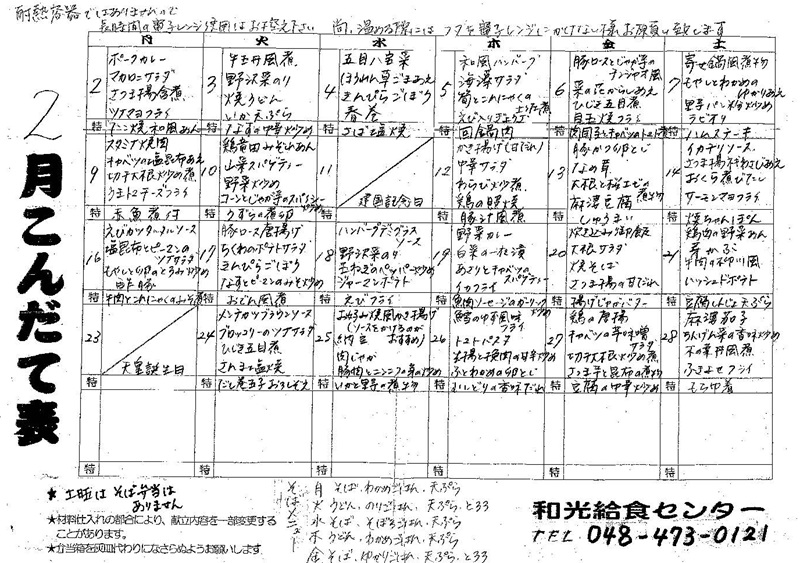 耐熱容器ではありませんので
長時間の電子レンジ使用はお控え下さい 尚、温める際には フタを電子レンジにかけない様お願い致します
2月こんだて表
月 火 水 木 金 土
2
ポークカレー
マカロニサラダ
さつま揚含煮
ツナマヨフライ
特
3
牛玉丼風煮
野沢菜のり
焼うどん
いか天ぷら
特
4
五目八宝菜
ほうれん草ごまあえ
きんぴらごぼう
春巻
特 さば塩焼
5
和風ハンバーグ
海藻サラダ
筍とこんにゃくの
えびへりぎょうざ
特 回鍋肉
6
豚ロースとじゃが芋の
菜の花からしあえ
ひじき五目煮
目玉フライ
特
7
寄せ鍋風煮物
もやしとわかめの
ゆかりあえ
野菜パン粉炒め
ラビオリ
特
9
スタミナ焼肉
キャベツの塩昆布あえ
切干大根炒め煮
うまトマチーズフライ
特 赤魚煮付
10
鶏竜田みぞれあん
山菜スパゲティー
野菜炒め
特 うずらの煮卵
11
建国記念日
特
12
かき揚げ(甘だれ)
中華サラダ
わらび炒め煮
鶏の照焼
特 豚汁風煮
13
豚かつ卵とじ
なめ茸
大根と桜エビの煮物
麻婆豆腐
特 しゅうまい
14
ハムステーキ
イカデリソース
おくら煮びたし
サーモンマヨフライ
特 焼ちゃんぽん
16
えびかつタルタルソース
塩昆布とピーマンの
ツナサラダ
もやしと卵のとろみ炒め
特 牛肉とこんにゃくのみそ煮
17
豚ロース唐揚げ
ちくわのポテトサラダ
きんぴらごぼう
なすとピーマンのみそ炒め
特 おでん風煮
18
ハンバーグデミグラス
ソース
野沢菜のり
玉ねぎのペッパー炒め
ジャーマンポテト
特 えびフライ
19
野菜カレー
白菜の一夜漬
あさりとキャベツの
スパゲティー
イカフライ
特 魚肉ソーセージのガーリック炒め
20
炊き込み御飯
大根サラダ
焼そば
さつま揚の甘だれ
特 揚げじゃがバター
21
鶏肉の野菜あん
芽かぶ
牛肉の柳川風
ハッシュドポテト
特 豆腐しんじょ天ぷら
23
天皇誕生日
特
24
メンチカツブラウンソース
ブロッコリーのツナサラダ
ひじき五目煮
さんま塩焼
特 だし巻玉子おろしぞえ
25
お好み焼風かき揚げ
(ソースをかけるのが
おすすめ)
納豆
肉じゃが
豚肉とニンニクの芽の炒め
特 いかと里芋の煮物
26
鱈の中華風味
フライ
トマトパスタ
厚揚と挽肉の甘辛炒め
ふとわかめの卵とじ
特
27
鶏の唐揚
キャベツの辛味噌
サラダ
切干大根炒め煮
さつま芋と昆布の煮物
特 豆腐の中華炒め
28
麻婆茄子
ちんげん菜の香味炒め
木の葉丼風煮
ふきよせフライ
特 もち巾着
特 特 特 特 特 特
★ 土曜は そば弁当は
ありません
★材料仕入れの都合により、献立内容を一部変更する
ことがあります。
★弁当箱を灰皿代わりになさらぬようお願いします
そばメニュー
月 そば、わかめごはん、天ぷら
火 うどん、のりごはん、天ぷら、とろろ
水 そば、そぼろごはん、天ぷら
木 うどん、わかめごはん、天ぷら
金 そば、ゆかりごはん、天ぷら、とろろ
和光給食センター
TEL 048-473-0121